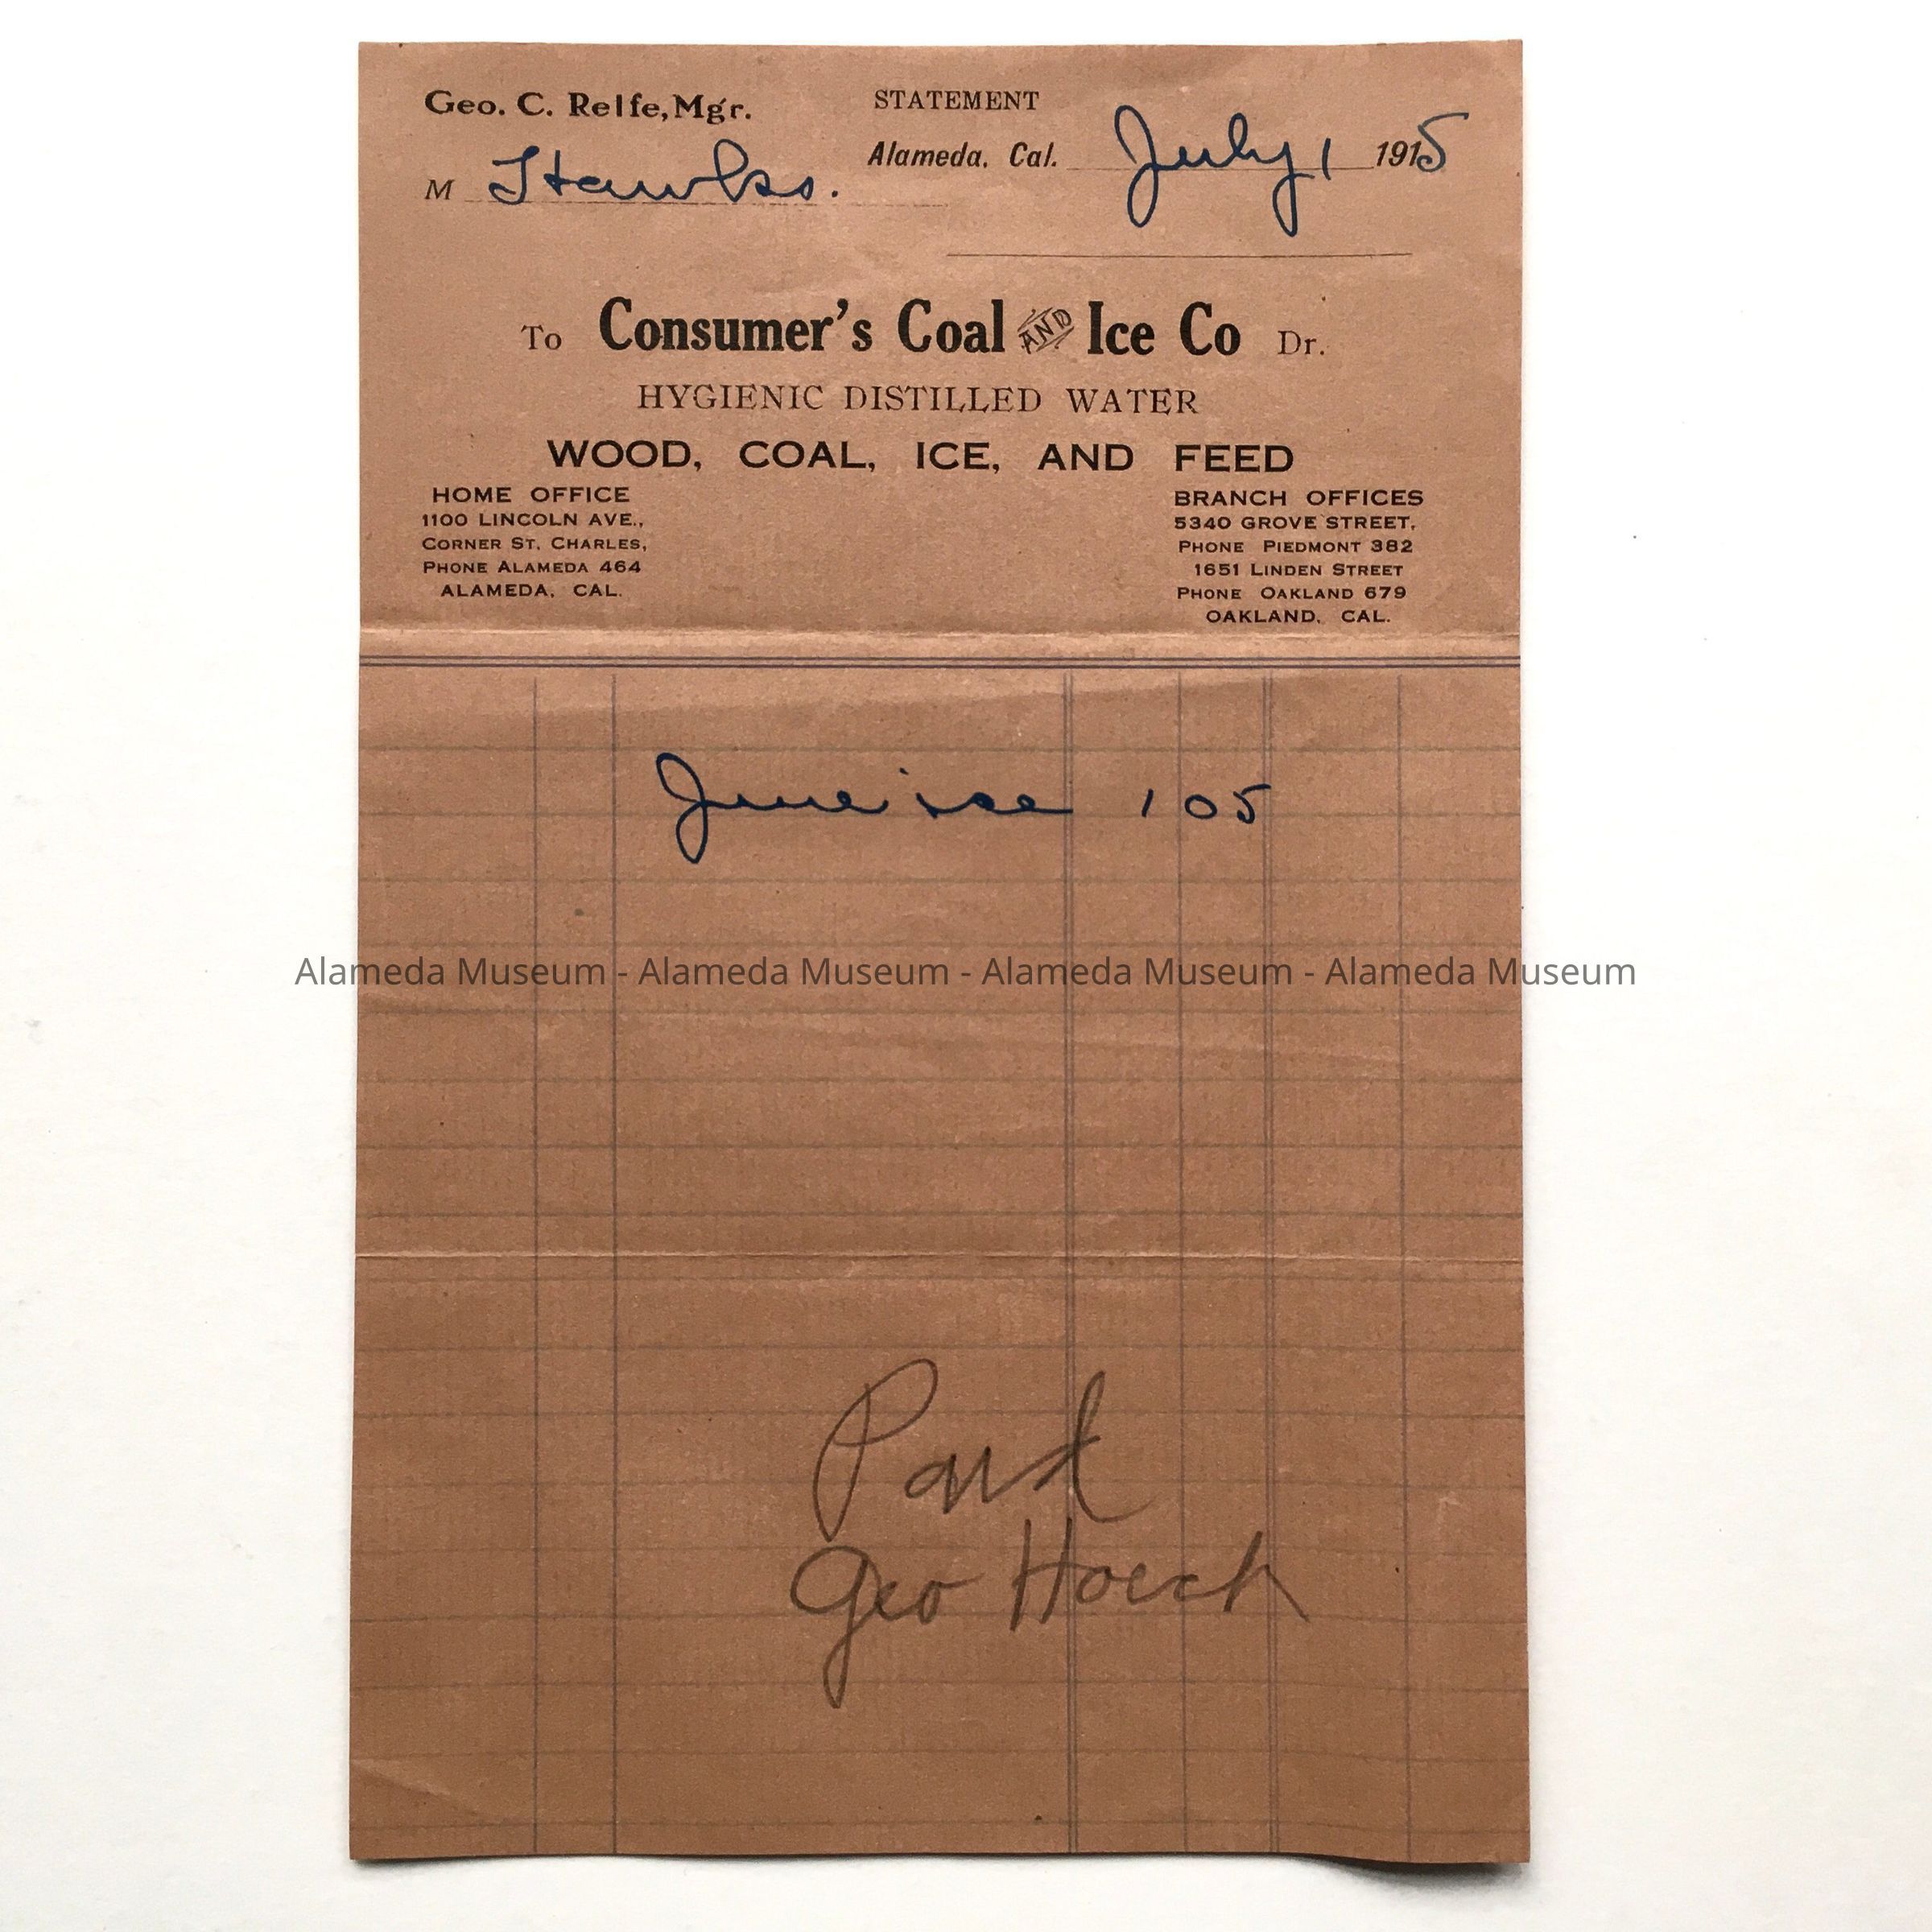 Geo. C. Relfe, Mgr.
STATEMENT
Alameda, Cal. July 1 1915
M Hawks.
To Consumer's Coal AND Ice Co Dr.
HYGIENIC DISTILLED WATER
WOOD, COAL, ICE, AND FEED
HOME OFFICE
1100 LINCOLN AVE.,
CORNER ST. CHARLES,
PHONE ALAMEDA 464
ALAMEDA, CAL.
BRANCH OFFICES
5340 GROVE STREET,
PHONE PIEDMONT 382
1651 LINDEN STREET
PHONE OAKLAND 679
OAKLAND, CAL.
June ice 1 05
Alameda Museum - Alameda Museum - Alameda Museum - Alameda Museum
Paid
Geo